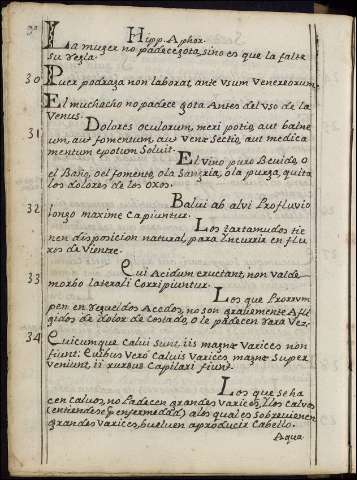 Hipp. Aphor.
La muger no padece gota, sino es que la falte
su regla.
30 Puer podraga non laborat, ante vsum Venereorum.
El muchocho no padece gota Antes del vso de la
Venus.
31 Dolores oculorum, meri potio, aut balne
um, aut fomentum, aut Venæ Sectio, aut medica
mentum epotum Soluit.
El Vino puro Bevido, o
el Baño, o el fomento, o la Sangria, o la purga, quita
los dolores de los oxos.
32 Balui ab alvi Profluvio
longo maxime Capiuntur.
Los tartamudos tie
nen disposicion natural, para Incurrir en flu
xos de Vientre.
33 Qui Acidum eructant, non Valde
morbo laterali Corripiuntur.
Los que Prorrum
pen en regueldos Acedos, no son gravemente Afli
gidos de dolor de Costado, o le padecen rara Vez.
34 Quicumque Calui Sunt, iis magnæ Varices non
fiunt: Quibus Vero Caluis Varices magnæ Super
Veniunt, ii rursus Capilati fiunt.
Los que se ha
cen calvos, no Padecen grandes Varices, Y los calvos
(entiendese enfermedad) a los quales Sobrevienen
grandes Varices, buelven a producir Cabello.
Aqua